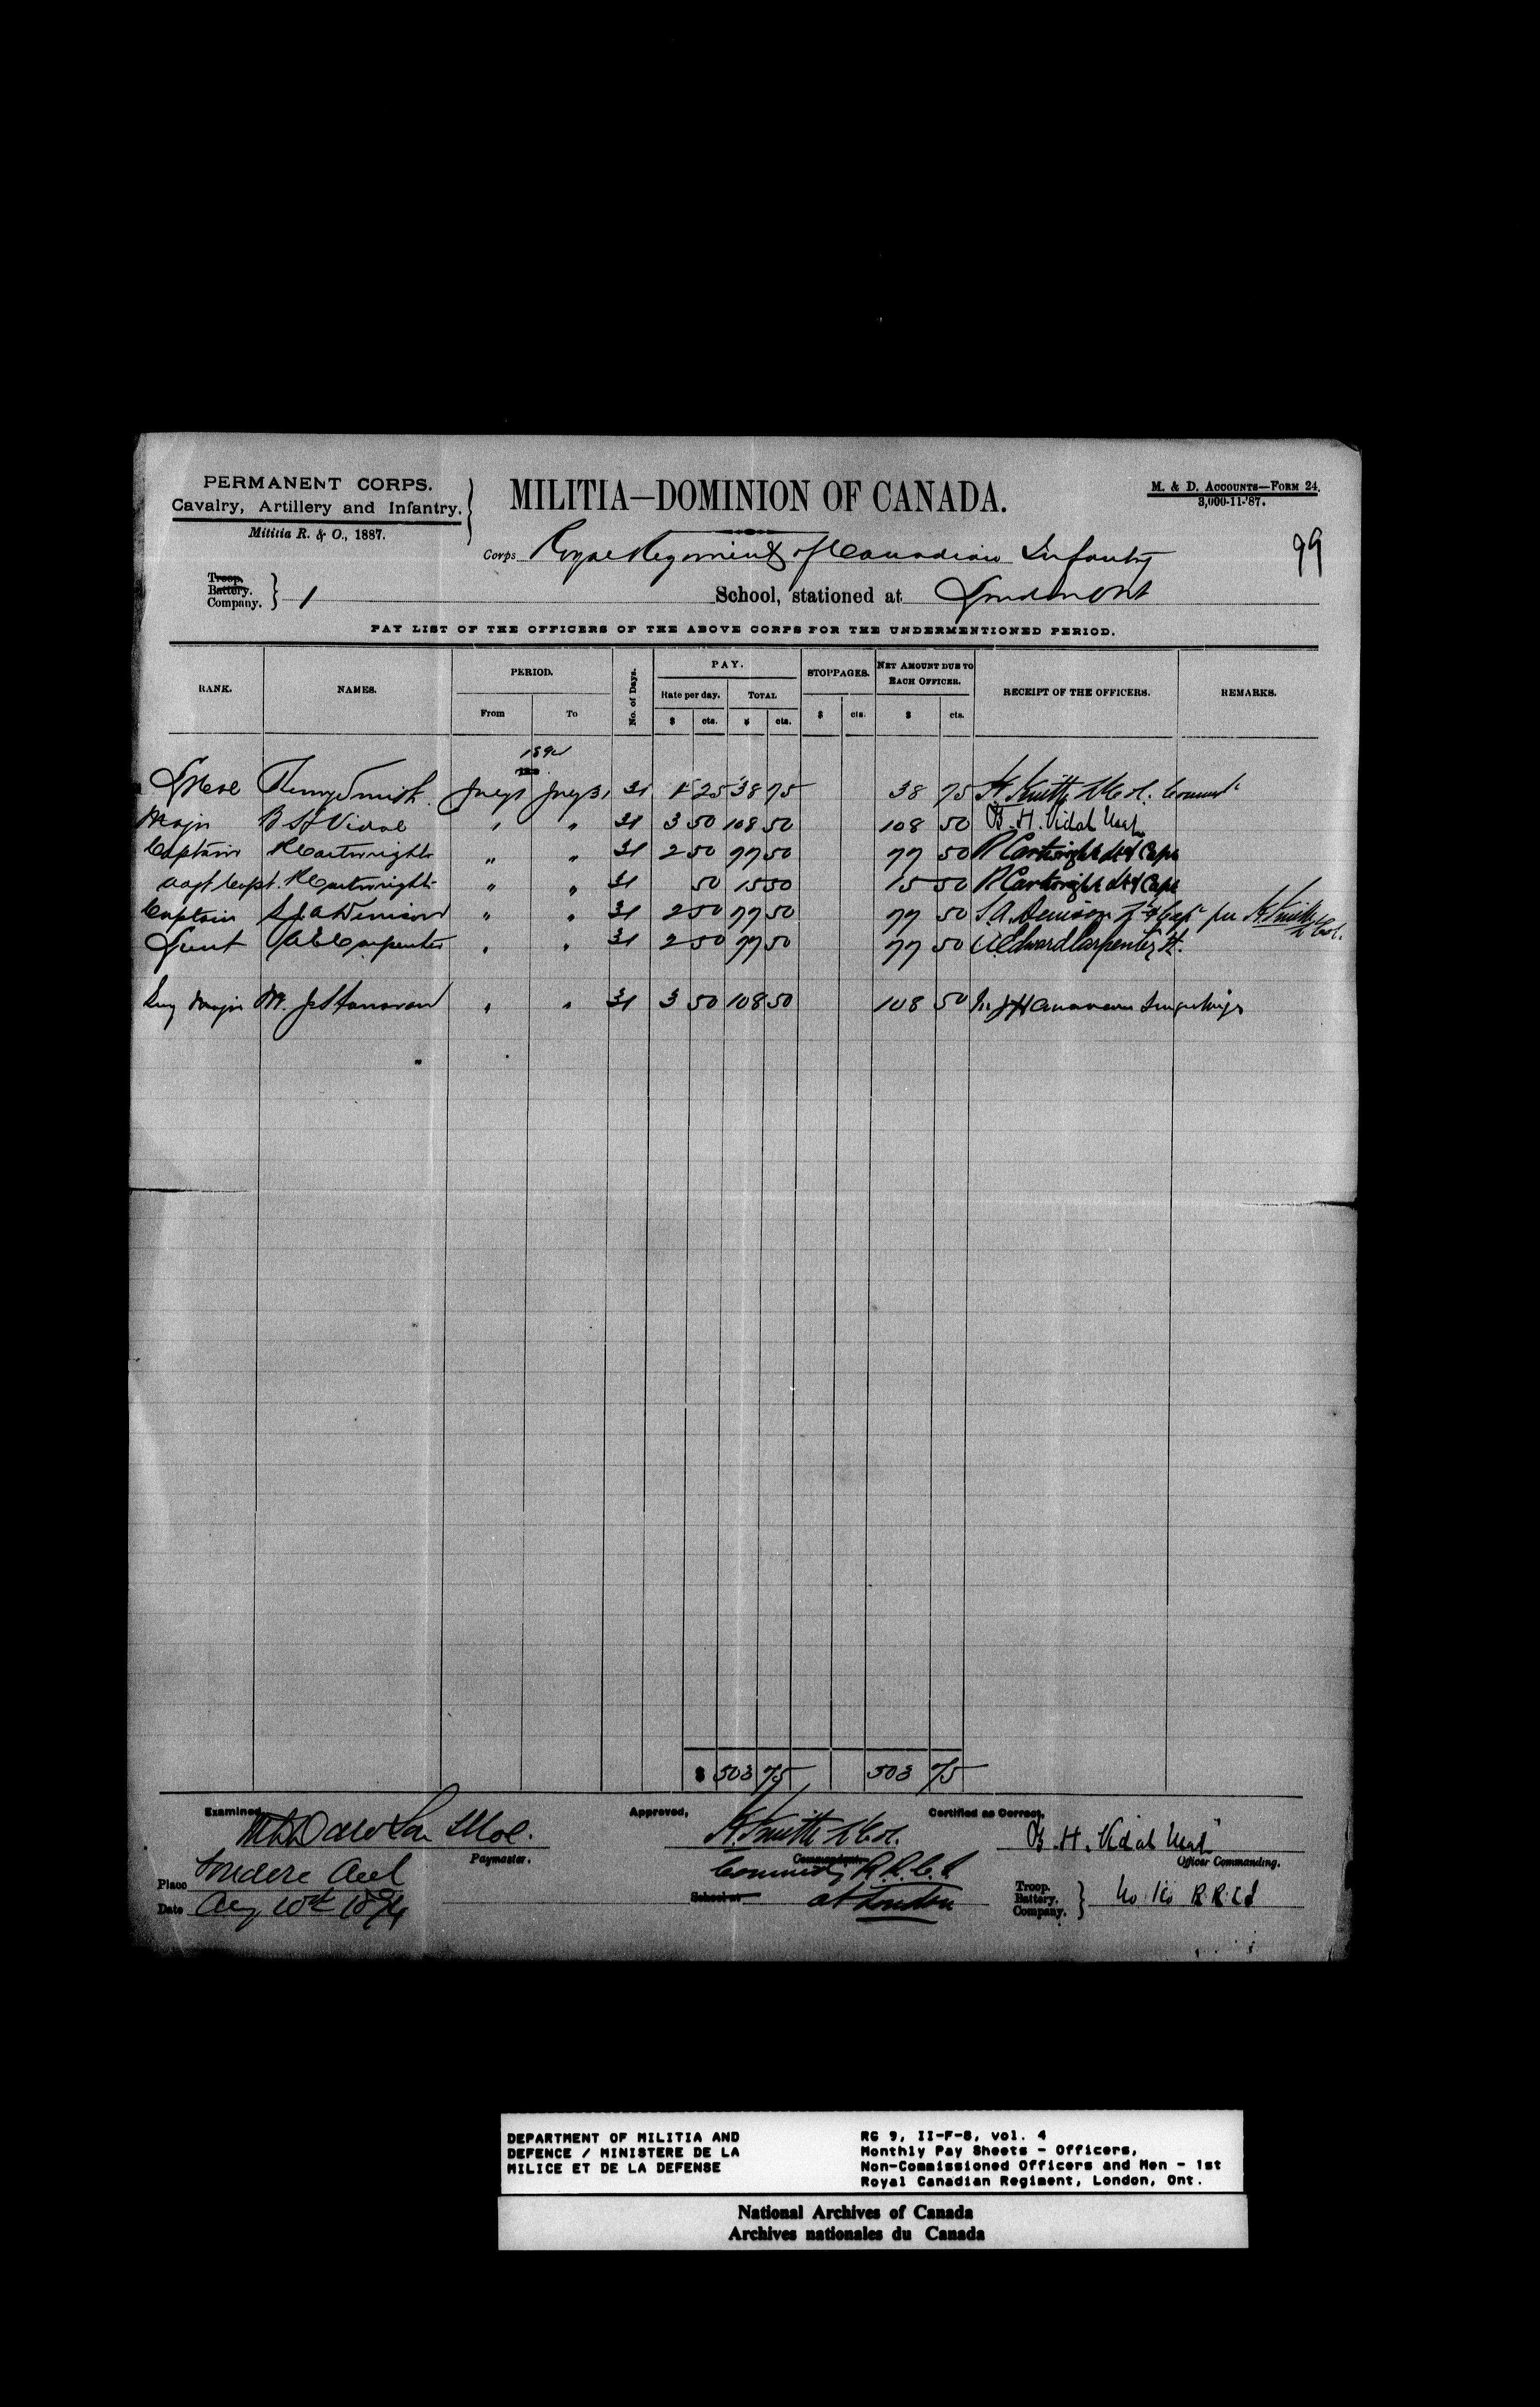 PERMANENT CORPS.
Cavalry, Artillery and Infantry.
Militia R. & O., 1887.
MILITIA—DOMINION OF CANADA.
M. & D. ACCOUNTS—FORM 24.
3,000-11-'87.
99
Corps Royal Regiment of Canadian Infantry
Troop.
Battery.
Company. } 1 School, stationed at London Ont
PAY LIST OF THE OFFICERS OF THE ABOVE CORPS FOR THE UNDERMENTIONED PERIOD.
RANK. NAMES. PERIOD. From To No. of Days. PAY. Rate per day. $ cts. TOTAL $ cts. STOPPAGES. $ cts. NET AMOUNT DUE TO EACH OFFICER. $ cts. RECEIPT OF THE OFFICERS. REMARKS.
189
Lt Col Henry Smith July 1 July 31 31 1 25 38 75 38 75 H. Smith Lt Col.
Major B H Vidal " " 31 3 50 108 50 108 50 B. H. Vidal Maj
Captain R Cartwright " " 31 2 50 77 50 77 50 R Cartwright Lt & Capt
Adjt Capt. R Cartwright " " 31 50 15 50 15 50 R Cartwright Lt & Capt
Captain S J A Denison " " 31 2 50 77 50 77 50 S.A. Denison Lt & Capt per H. Smith Lt Col.
Lieut A E Carpenter " " 31 2 50 77 50 77 50 A. Edward Carpenter Lt.
Surg Major M. J. Hanavan " " 31 3 50 108 50 108 50 M. J Hanavan Surg Major
$ 503 75 503 75
Examined, Lt Col.
Paymaster.
Approved, H. Smith Lt Col.
Commandant
R.R.C.I
School at at London
Certified as Correct,
B. H. Vidal Maj
Officer Commanding.
Troop.
Battery.
Company. } R.R.C.I
Place London
Date Aug 10th 1894
DEPARTMENT OF MILITIA AND
DEFENCE / MINISTERE DE LA
MILICE ET DE LA DEFENSE
RG 9, II-F-8, vol. 4
Monthly Pay Sheets - Officers,
Non-Commissioned Officers and Men - 1st
Royal Canadian Regiment, London, Ont.
National Archives of Canada
Archives nationales du Canada